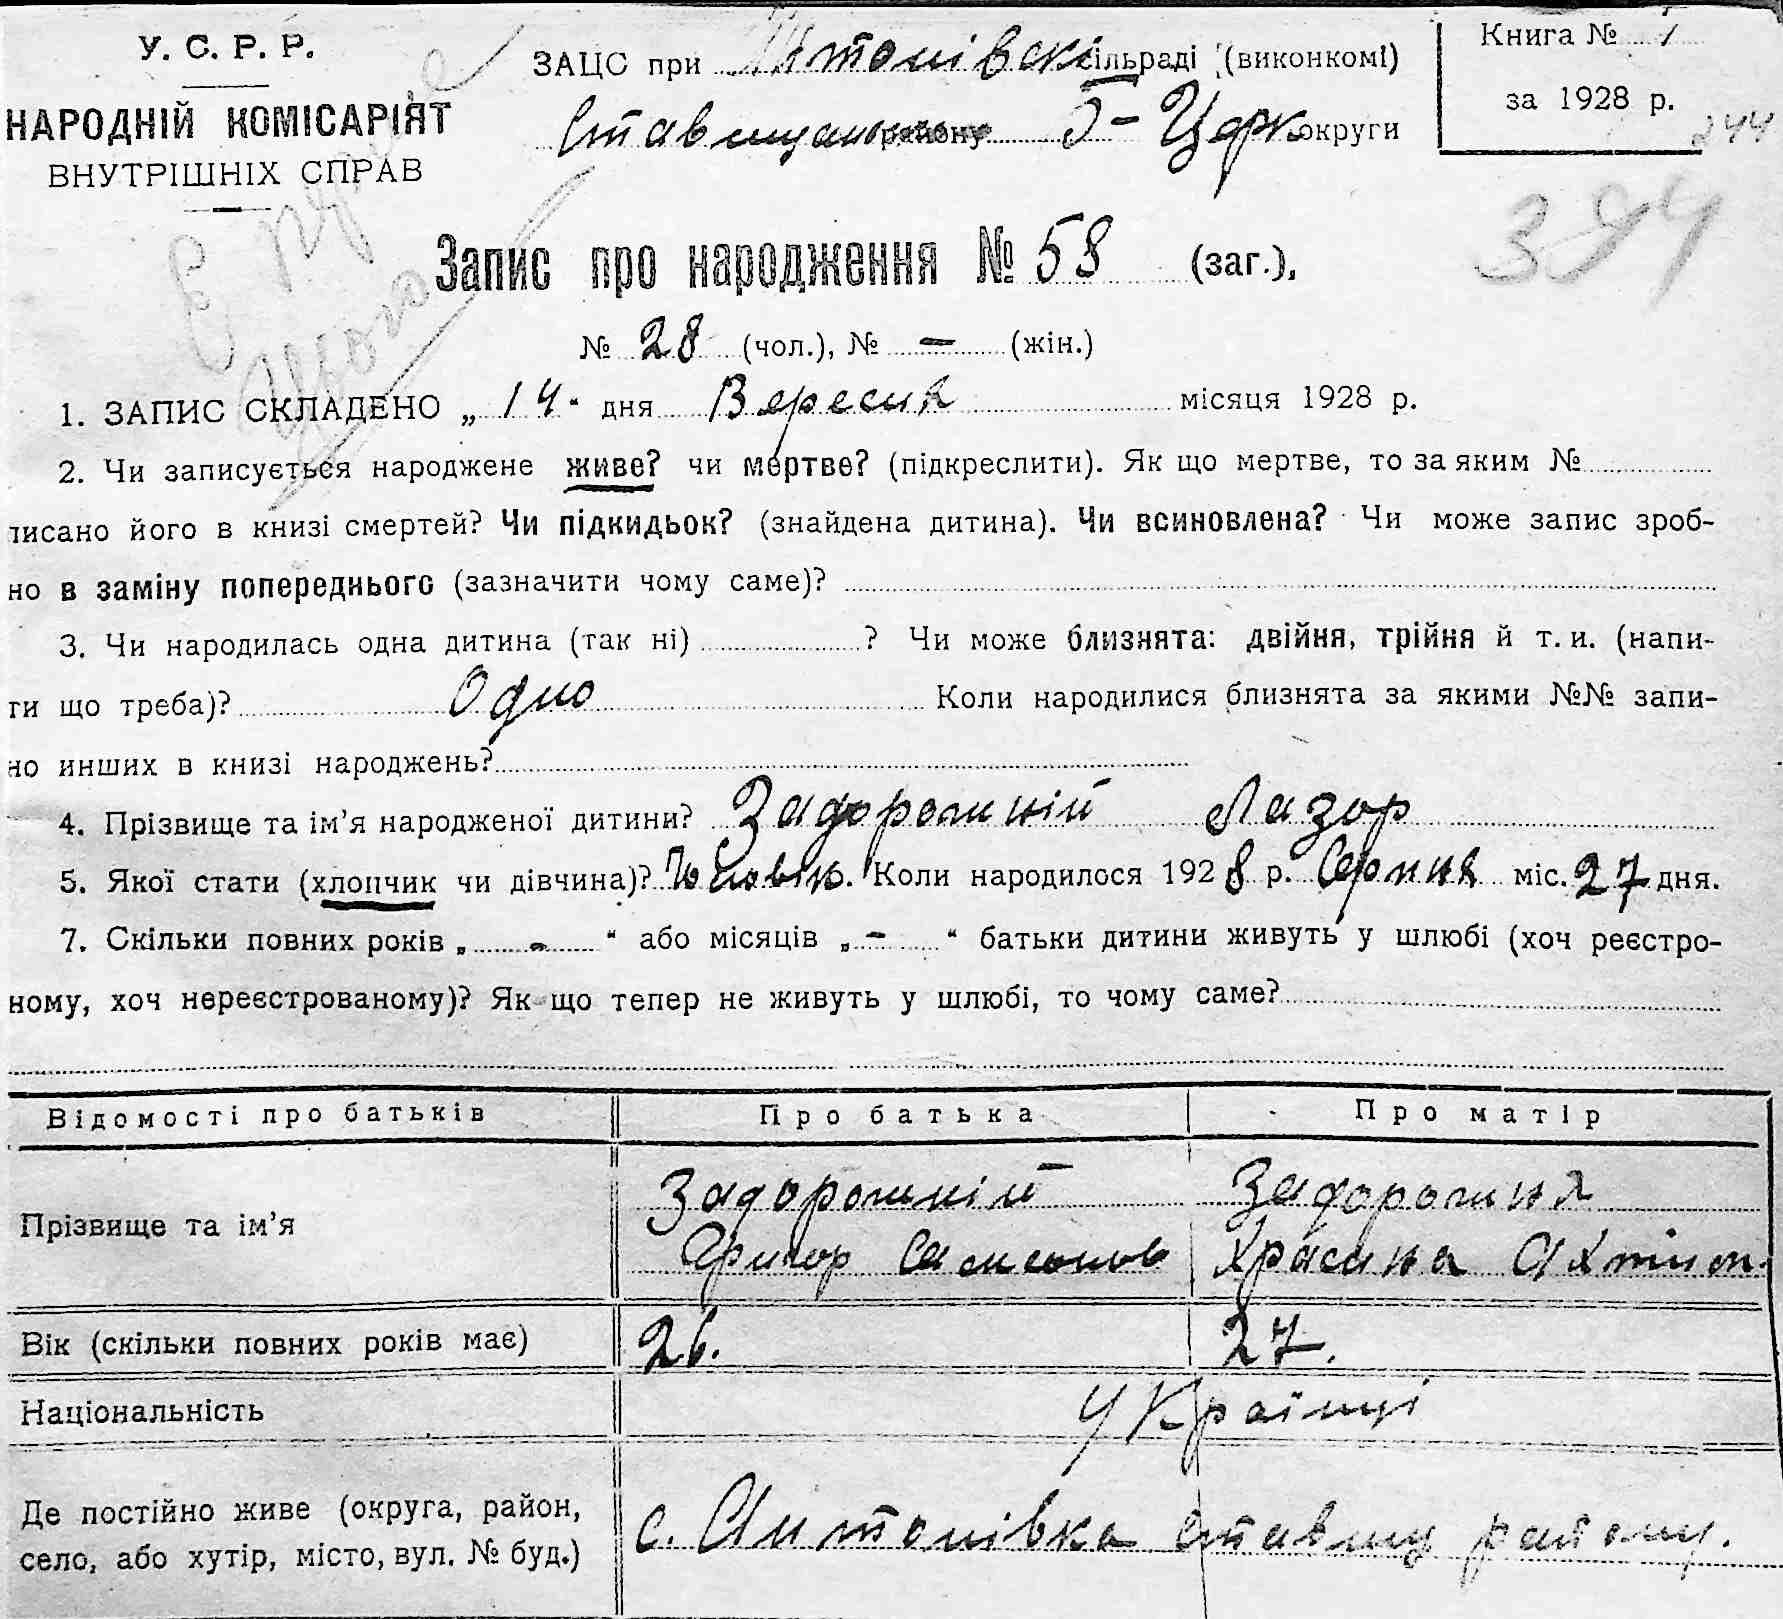 У. С. Р. Р.
НАРОДНІЙ КОМІСАРІЯТ
ВНУТРІШНІХ СПРАВ
ЗАЦС при сільраді (виконкомі)
району Б-Церк округи
Книга № 1
за 1928 р.
244
394
Запис про народження № 58 (заг.),
№ 28 (чол.), № — (жін.)
1. ЗАПИС СКЛАДЕНО „ 14 " дня Вересня місяця 1928 р.
2. Чи записується народжене живе? чи мертве? (підкреслити). Як що мертве, то за яким №
писано його в книзі смертей? Чи підкидьок? (знайдена дитина). Чи всиновлена? Чи може запис зроб-
но в заміну попереднього (зазначити чому саме)?
3. Чи народилась одна дитина (так ні) ? Чи може близнята: двійня, трійня й т. и. (напи-
ти що треба)? Одно Коли народилися близнята за якими №№ запи-
но инших в книзі народжень?
4. Прізвище та ім'я народженої дитини? Задорожній Лазор
5. Якої стати (хлопчик чи дівчина)? Чоловік. Коли народилося 1928 р. Серпня міс. 27 дня.
7. Скільки повних років „ - " або місяців „ - " батьки дитини живуть у шлюбі (хоч реєстро-
ному, хоч нереєстрованому)? Як що тепер не живуть у шлюбі, то чому саме?
Відомості про батьків Про батька Про матір
Прізвище та ім'я Задорожній Задорожня
Григор Самсонов
Вік (скільки повних років має) 26. 27.
Національність Українці
Де постійно живе (округа, район,
село, або хутір, місто, вул. № буд.) с. Антонівка Ставищ району.